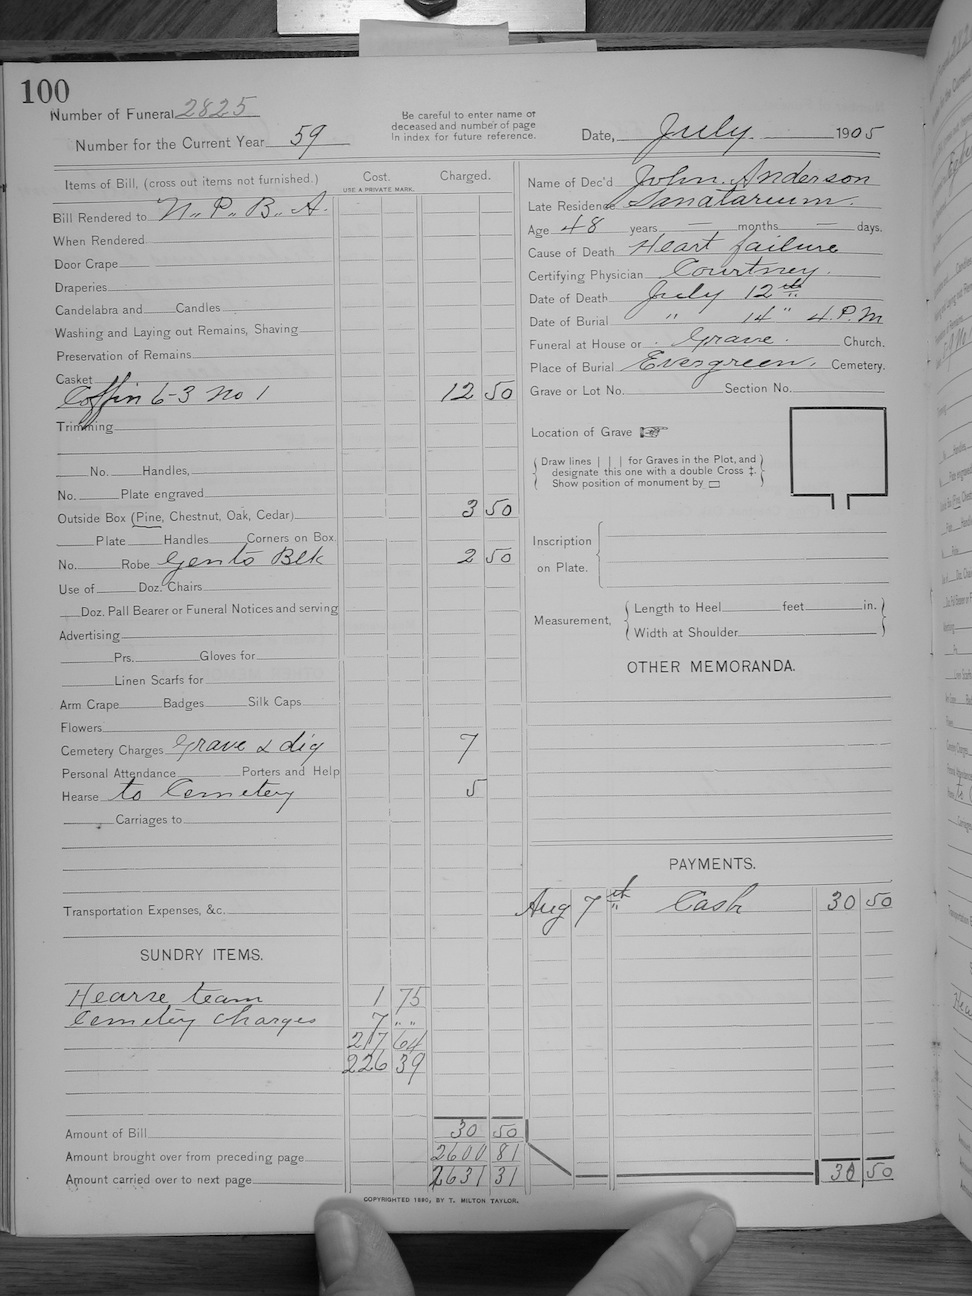 100
Number of Funeral 2825
Number for the Current Year 59
Be careful to enter name of
deceased and number of page
in index for future reference.
Date, July 1905
Items of Bill, (cross out items not furnished.)
Cost.
USE A PRIVATE MARK.
Charged.
Bill Rendered to N. P. B. A.
When Rendered
Door Crape
Draperies
Candelabra and Candles
Washing and Laying out Remains, Shaving
Preservation of Remains
Casket
Coffin 6-3 No 1 12 50
Trimming
No. Handles,
No. Plate engraved
Outside Box (Pine, Chestnut, Oak, Cedar) 3 50
Plate Handles Corners on Box.
No. Robe Gents Blk 2 50
Use of Doz. Chairs
Doz. Pall Bearer or Funeral Notices and serving
Advertising
Prs. Gloves for
Linen Scarfs for
Arm Crape Badges Silk Caps
Flowers
Cemetery Charges Grave & dig 7
Personal Attendance Porters and Help
Hearse to Cemetery 5
Carriages to
Transportation Expenses, &c.
SUNDRY ITEMS.
Hearse team 1 75
Cemetey charges 7 " "
217 64
226 39
Amount of Bill 30 50
Amount brought over from preceding page 2600 81
Amount carried over to next page 2631 31
Name of Dec'd John Anderson
Late Residence Sanatarium.
Age 48 years — months — days.
Cause of Death Heart failure
Certifying Physician Courtney.
Date of Death July 12th
Date of Burial " 14" 4 P.M
Funeral at House or Grave. Church.
Place of Burial Evergreen. Cemetery.
Grave or Lot No. Section No.
Location of Grave ☞
Draw lines | | | for Graves in the Plot, and
designate this one with a double Cross ‡.
Show position of monument by ▭
Inscription
on Plate.
Measurement,
Length to Heel feet in.
Width at Shoulder
OTHER MEMORANDA.
PAYMENTS.
Aug 7th Cash 30 50
30 50
COPYRIGHTED 1890, BY T. MILTON TAYLOR.